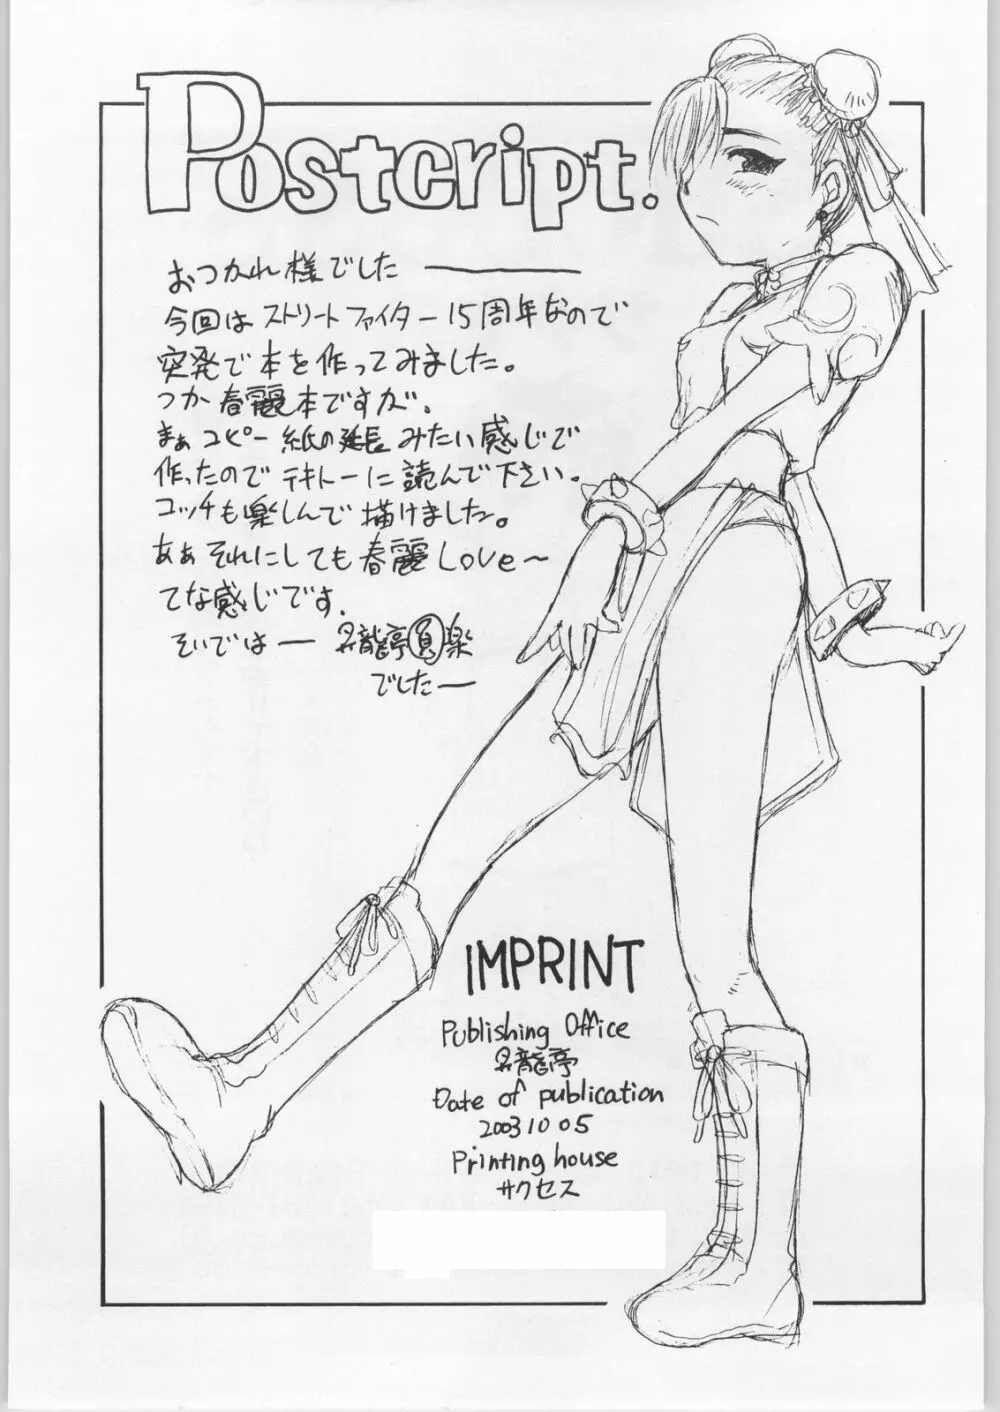 Postcript.
おつかれ様でした―――
今回はストリートファイター15周年なので
突発で本を作ってみました。
つか春麗本ですが、
まぁコピー紙の延長みたい感じで
作ったのでテキトーに読んで下さい。
コッチも楽しんで描けました。
ああそれにしても春麗Love〜
てな感じです。
そいでは― 昇龍亭 楽
でしたー
IMPRINT
Publishing Office
昇龍亭
Date of publication
2003 10 05
Printing house
サクセス